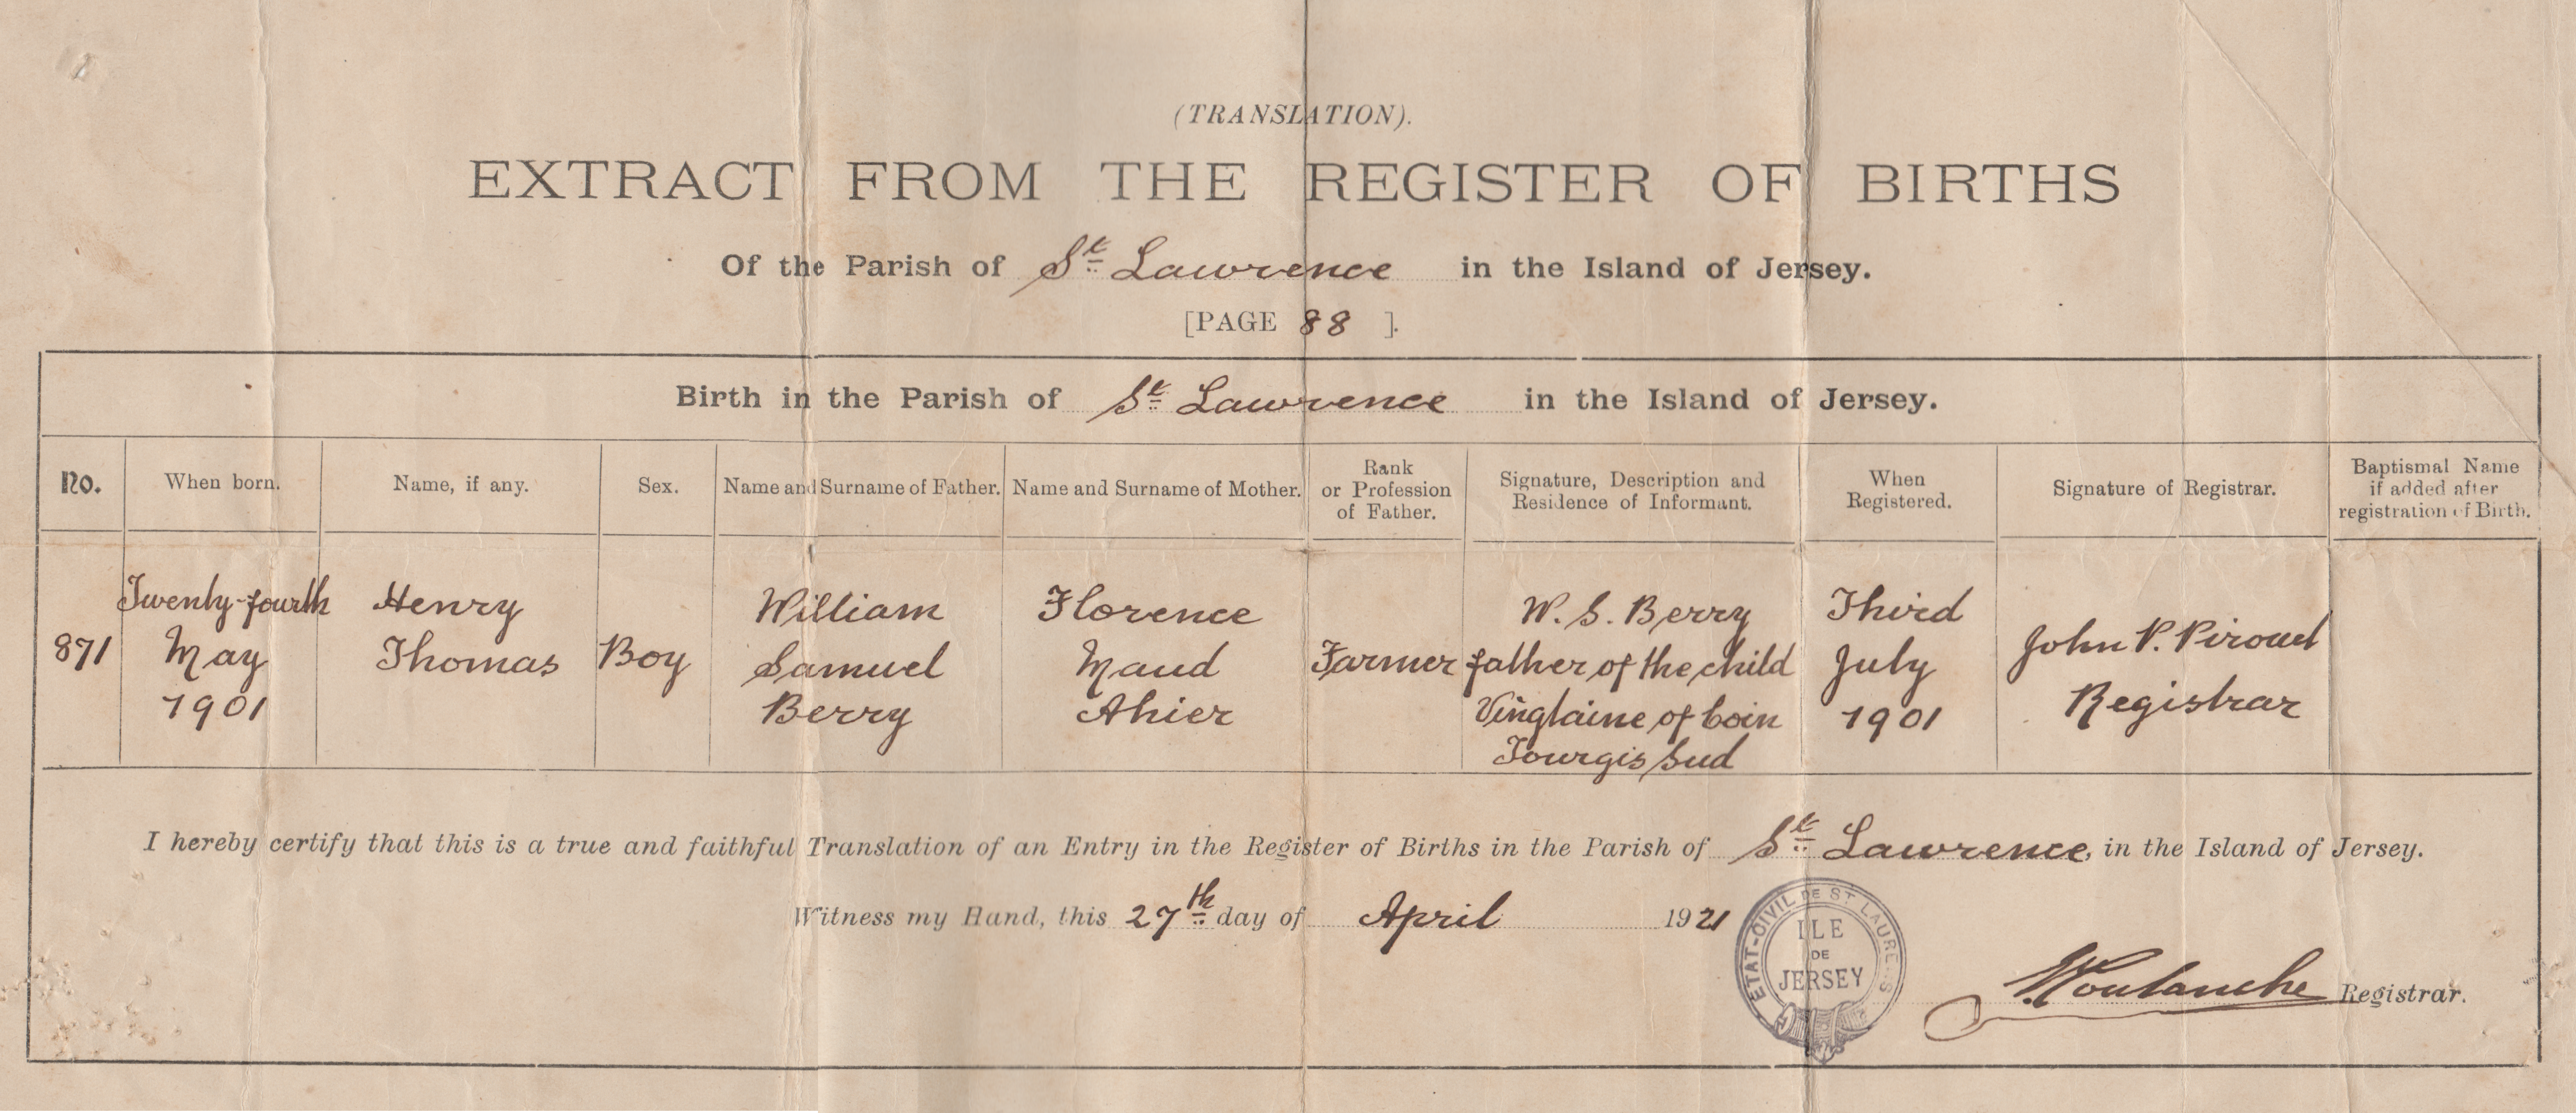 (TRANSLATION).
EXTRACT FROM THE REGISTER OF BIRTHS
Of the Parish of St Lawrence in the Island of Jersey.
[PAGE 88 ].
Birth in the Parish of St Lawrence in the Island of Jersey.
No.
When born.
Name, if any.
Sex.
Name and Surname of Father.
Name and Surname of Mother.
Rank
or Profession
of Father.
Signature, Description and
Residence of Informant.
When
Registered.
Signature of Registrar.
Baptismal Name
if added after
registration of Birth.
871
Twenty-fourth
May
1901
Henry
Thomas
Boy
William
Samuel
Berry
Florence
Maud
Ahier
Farmer
W. S. Berry
father of the child
Vingtaine of Coin
Tourgis Sud
Third
July
1901
John P. Pirouet
Registrar
I hereby certify that this is a true and faithful Translation of an Entry in the Register of Births in the Parish of St Lawrence, in the Island of Jersey.
Witness my Hand, this 27th day of April 1921
ETAT-CIVIL DE ST LAURE S
ILE
DE
JERSEY
Registrar.